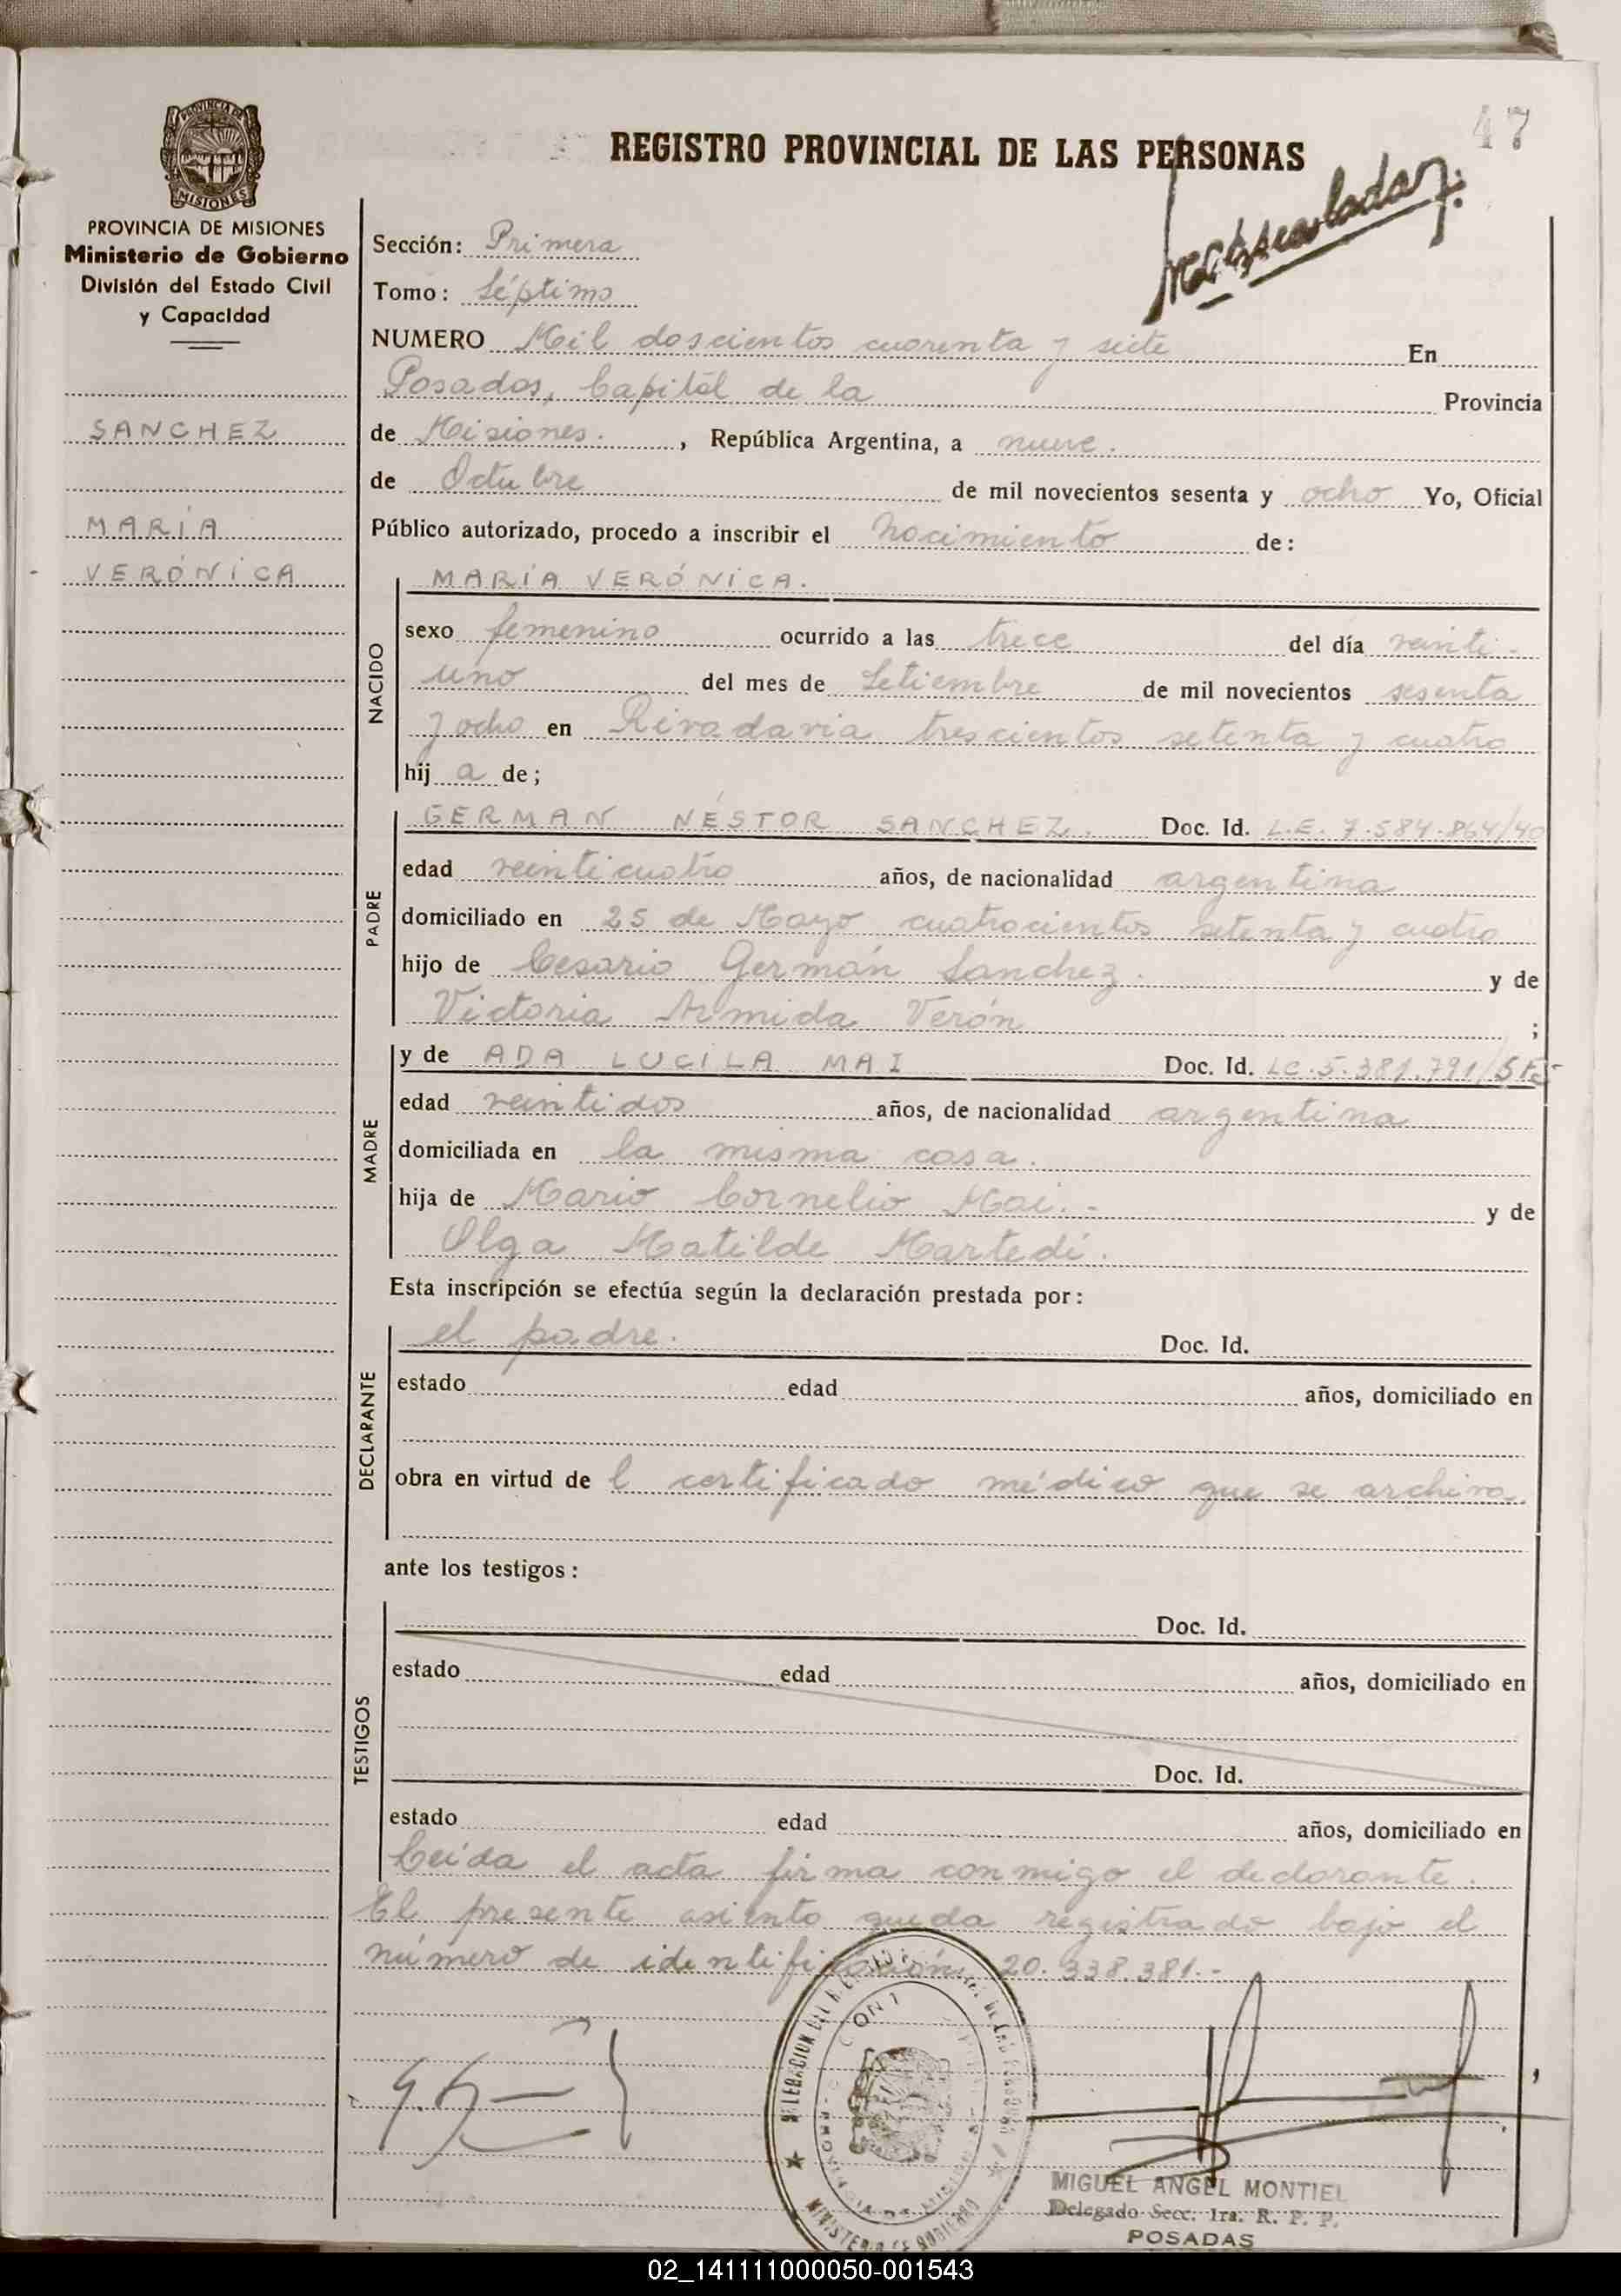 47
REGISTRO PROVINCIAL DE LAS PERSONAS
PROVINCIA DE MISIONES
Ministerio de Gobierno
División del Estado Civil
y Capacidad
SANCHEZ
MARÍA
VERÓNICA
Sección: Primera
Tomo: Séptimo
NUMERO Mil doscientos cuarenta y siete En
Posadas, Capital de la Provincia
de Misiones. , República Argentina, a nueve.
de Octubre de mil novecientos sesenta y ocho Yo, Oficial
Público autorizado, procedo a inscribir el nacimiento de:
NACIDO
MARÍA VERÓNICA.
sexo femenino ocurrido a las trece del día veinti-
uno del mes de Setiembre de mil novecientos sesenta
y ocho en Rivadavia trescientos setenta y cuatro
hij a de;
PADRE
GERMAN NÉSTOR SANCHEZ. Doc. Id. L.E. 7.584.864/40
edad veinticuatro años, de nacionalidad argentina
domiciliado en 25 de Mayo cuatrocientos setenta y cuatro
hijo de Cesario Germán Sanchez. y de
Victoria Armida Verón ;
MADRE
y de ADA LUCILA MAI Doc. Id. LC.5.381.791
edad veintidos años, de nacionalidad argentina
domiciliada en la misma casa.
hija de Mario Cornelio Mai.- y de
Olga Matilde Martedí.
Esta inscripción se efectúa según la declaración prestada por:
DECLARANTE
el padre. Doc. Id.
estado edad años, domiciliado en
obra en virtud de l certificado médico que se archiva.
ante los testigos:
TESTIGOS
Doc. Id.
estado edad años, domiciliado en
Doc. Id.
estado edad años, domiciliado en
Leída el acta firma conmigo el declarante.
El presente asiento queda registrado bajo el
número de identificación 20.338.381.-
MINISTERIO DE GOBIERNO
MIGUEL ANGEL MONTIEL
Delegado Secc. 1ra. R. P. P.
POSADAS
02_141111000050-001543